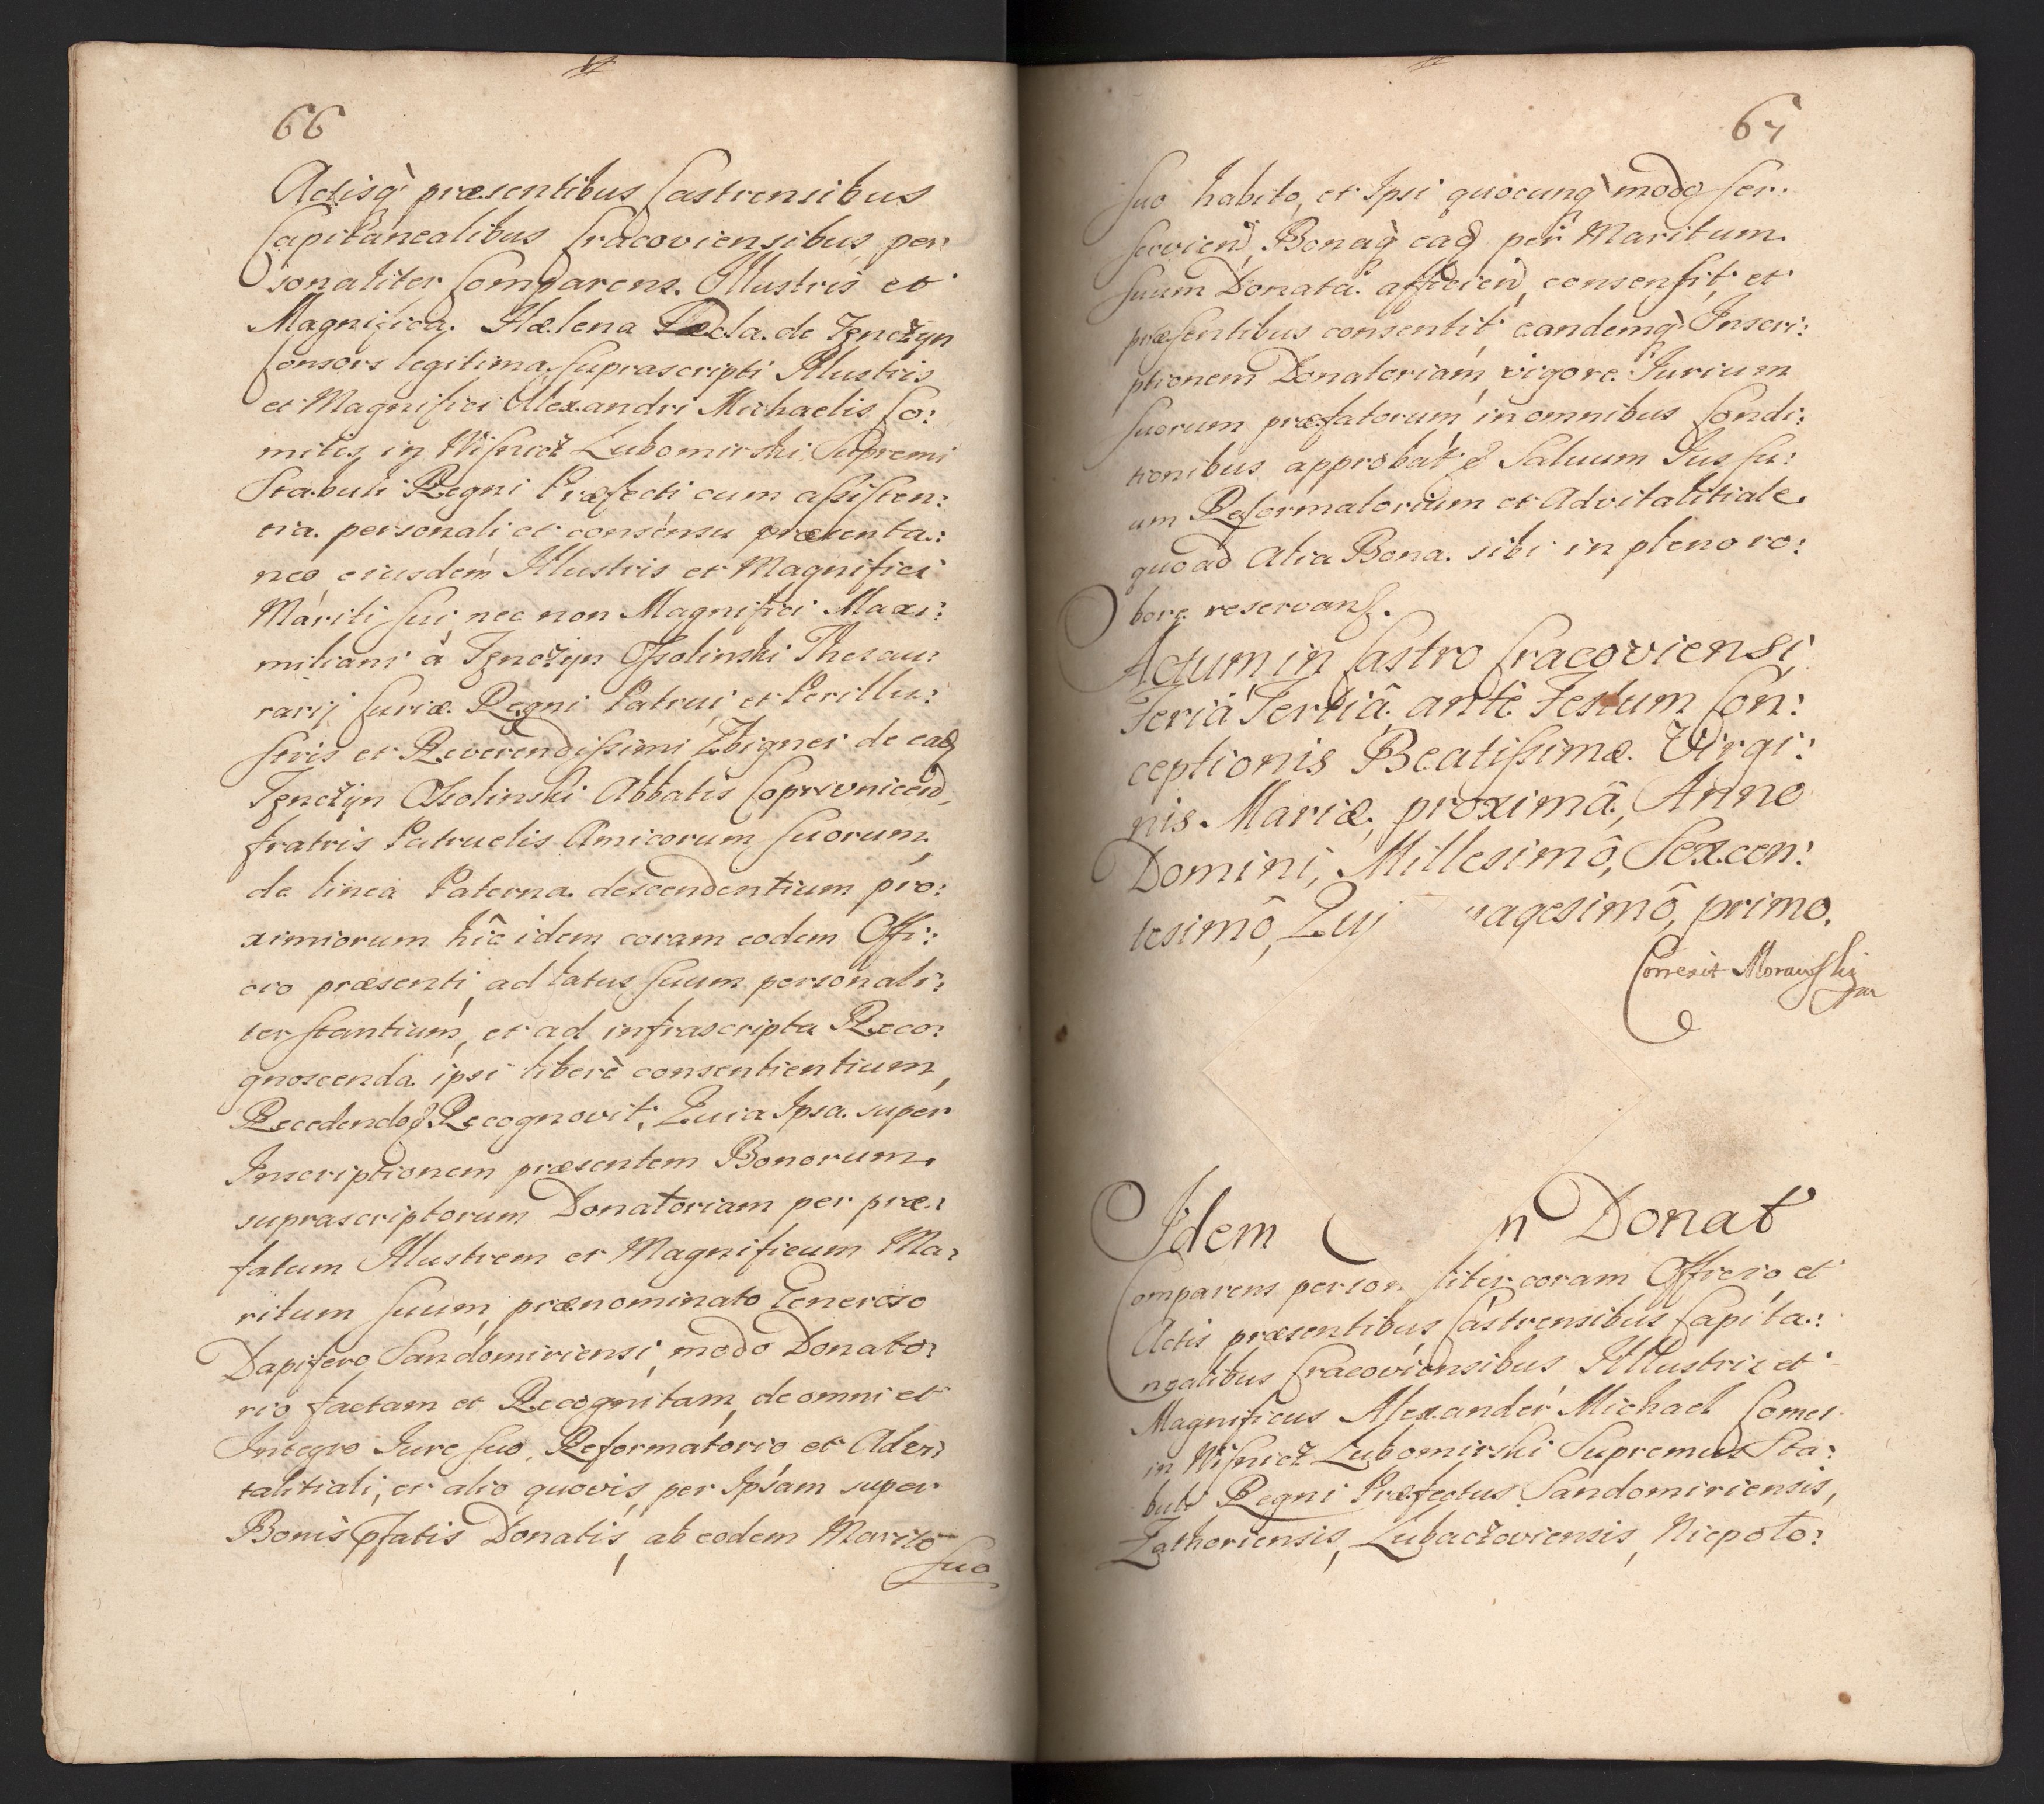 66
Actisq̀ præsentibus Castrensibus
Capitanealibus Cracoviensibus per
sonaliter Comparens. Illustris et
Magnifica. Hælena Tecla. de Tęnczyn
Consors legitima, suprascripti Illustris
et Magnifici Alexandri Michaelis Co:
mitis in Wisnicz Lubomirski Supremi
Stabuli Regni Præfecti cum assisten:
tia. personali et consensu præsenta:
neo eiusdem Illustris et Magnifici
Mariti sui nec non Magnifici Maxi:
miliani à Tęnczyn Ossolinski Thesau:
rarij Curiæ Regni Patrui et Perillu:
stris et Reverendissimi Zbignei de ead
Tęnczyn Ossolinski Abbatis Coprivnicen,
fratris Patruelis Amicorum suorum
de linea Paterna. descendentium pro:
ximiorum hîc idem coram eodem Offi:
cio præsenti, ad latus suum personali:
ter stantium, et ad infrascripta Reco:
gnoscenda ipsi liberè consentientium,
Recedendo Recognovit, Quia Ipsa. super
Inscriptionem præsentem Bonorum
suprascriptorum Donatoriam per præ:
fatum Illustrem et Magnificum Ma:
ritum suum, prænominato Generoso
Dapifero Sandomiriensi, modo Donato:
rio factam et Recognitam, de omni et
Integro Iure suo, Reformatorio et Advi:
talitiali, et alio quovis, per Ipsam super
Bonis pfatis Donatis, ab eodem Marito
suo
67
suo habito, et Ipsi quocunq̀ modo ser:
servien, Bonaq̀ ead per Maritum.
suum Donata afficien, consensit, et
præsentibus consentit, eandemq̀ Inscri:
ptionem Donatoriam vigore Iurium
suorum præfatorum, in omnibus Condi:
tionibus approbat, Saluum Ius su:
um Reformatorium et Advitalitiale.
quoad Alia Bona. sibi in pleno ro:
bore reservans.
Actum in Castro Cracoviensi,
Feriâ Tertiâ ante Festum Con:
ceptionis Beatissimæ Virgi:
nis Mariæ, proximâ, Anno
Domini, Millesimô, Sexcen:
tesimô, Qui uagesimô, primo.
Correxit Morawski
Idem n Donat
Comparens person liter coram Officio et
Actis præsentibus Castrensibus Capita:
nealibus Cracoviensibus Illustris et
Magnificus Alexander Michael Comes
in Wisnicz Lubomirski Supremus Sta:
buli Regni Præfectus Sandomiriensis,
Zathoriensis, Lubaczoviensis, Niepoło: